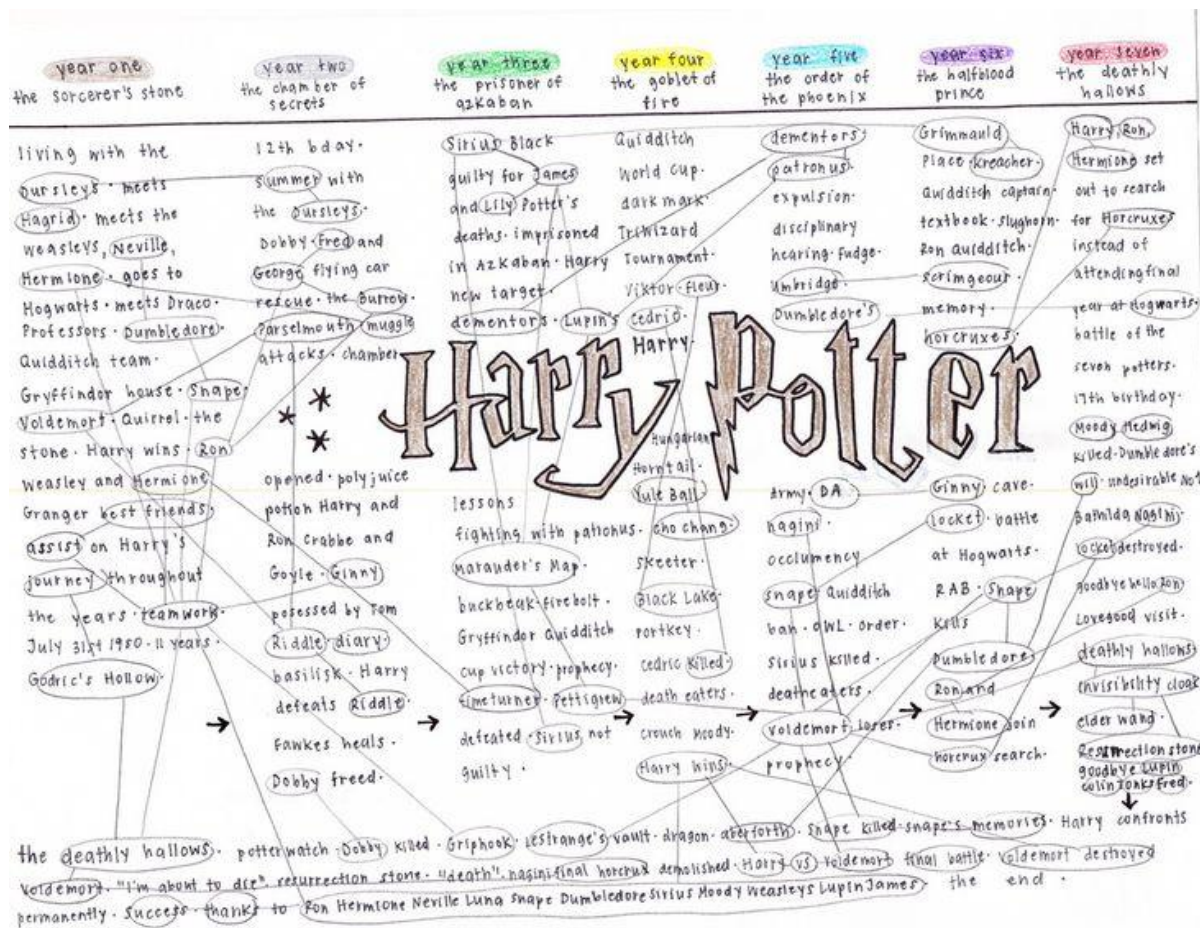 year one
the sorcerer's stone
living with the
Dursleys · meets
Hagrid · meets the
weasleys, Neville,
Hermione · goes to
Hogwarts · meets Draco ·
Professors · Dumbledore ·
Quidditch team ·
Gryffindor house · Snape ·
Voldemort · Quirrel · the
stone · Harry wins · Ron
weasley and Hermione
Granger best friends ·
assist on Harry's
journey throughout
the years · teamwork ·
July 31st 1980 · 11 years ·
Godric's Hollow ·
year two
the chamber of
secrets
12th bday ·
summer with
the Dursleys ·
Dobby · Fred and
George flying car
rescue · the Burrow ·
Parselmouth muggle
attacks · chamber
opened · polyjuice
potion Harry and
Ron Crabbe and
Goyle · Ginny
posessed by Tom
Riddle · diary ·
basilisk · Harry
defeats Riddle ·
Fawkes heals ·
Dobby freed ·
year three
the prisoner of
azkaban
Sirius Black
guilty for James
and Lily Potter's
deaths · imprisoned
in Azkaban · Harry
new target ·
dementors · Lupin's
lessons
fighting with patronus ·
Marauder's Map ·
buckbeak · firebolt ·
Gryffindor Quidditch
cup victory · prophecy ·
timeturner · Pettigrew
defeated · Sirius not
guilty ·
year four
the goblet of
fire
Quidditch
World Cup ·
dark mark ·
Triwizard
Tournament ·
Viktor · Fleur ·
Cedric ·
Harry ·
Hungarian
Horntail ·
Yule Ball ·
cho chang ·
skeeter ·
Black Lake ·
Portkey ·
cedric killed ·
death eaters ·
crouch moody ·
Harry wins ·
year five
the order of
the phoenix
dementors ·
patronus ·
expulsion ·
disciplinary
hearing · Fudge ·
Umbridge ·
Dumbledore's
Army · DA
nagini ·
occlumency
snape · Quidditch
ban · OWL · order ·
sirius killed ·
deatheaters ·
voldemort loses ·
prophecy ·
year six
the halfblood
prince
Grimmauld
Place · Kreacher ·
Quidditch captain ·
textbook · slughorn ·
Ron Quidditch ·
scrimgeour ·
memory ·
horcruxes ·
Ginny · cave ·
locket · battle
at Hogwarts ·
RAB · Snape
kills
Dumbledore ·
Ron and
Hermione join
horcrux search ·
year seven
the deathly
hallows
Harry, Ron,
Hermione set
out to search
for Horcruxes
instead of
attending final
year at Hogwarts ·
battle of the
seven potters ·
17th birthday ·
Moody Hedwig
killed · Dumbledore's
will · undesirable No 1
Bathilda Nagini ·
locket destroyed ·
goodbye hello Ron ·
Lovegood visit ·
deathly hallows ·
invisibility cloak
elder wand ·
Resurrection stone
goodbye Lupin
colin Tonks Fred ·
Harry Potter
the deathly hallows · potterwatch · Dobby killed · Griphook · Lestrange's vault · dragon · aberforth · Snape killed · snape's memories · Harry confronts
voldemort · "I'm about to die" resurrection stone · "death" · nagini final horcrux demolished · Harry vs voldemort final battle · voldemort destroyed
permanently · Success · thanks to Ron Hermione Neville Luna Snape Dumbledore Sirius Moody Weasleys Lupin James · the end ·